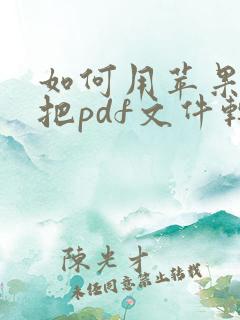 如何用苹果
把pdf文件轉
陳光才
未经同意禁止转载